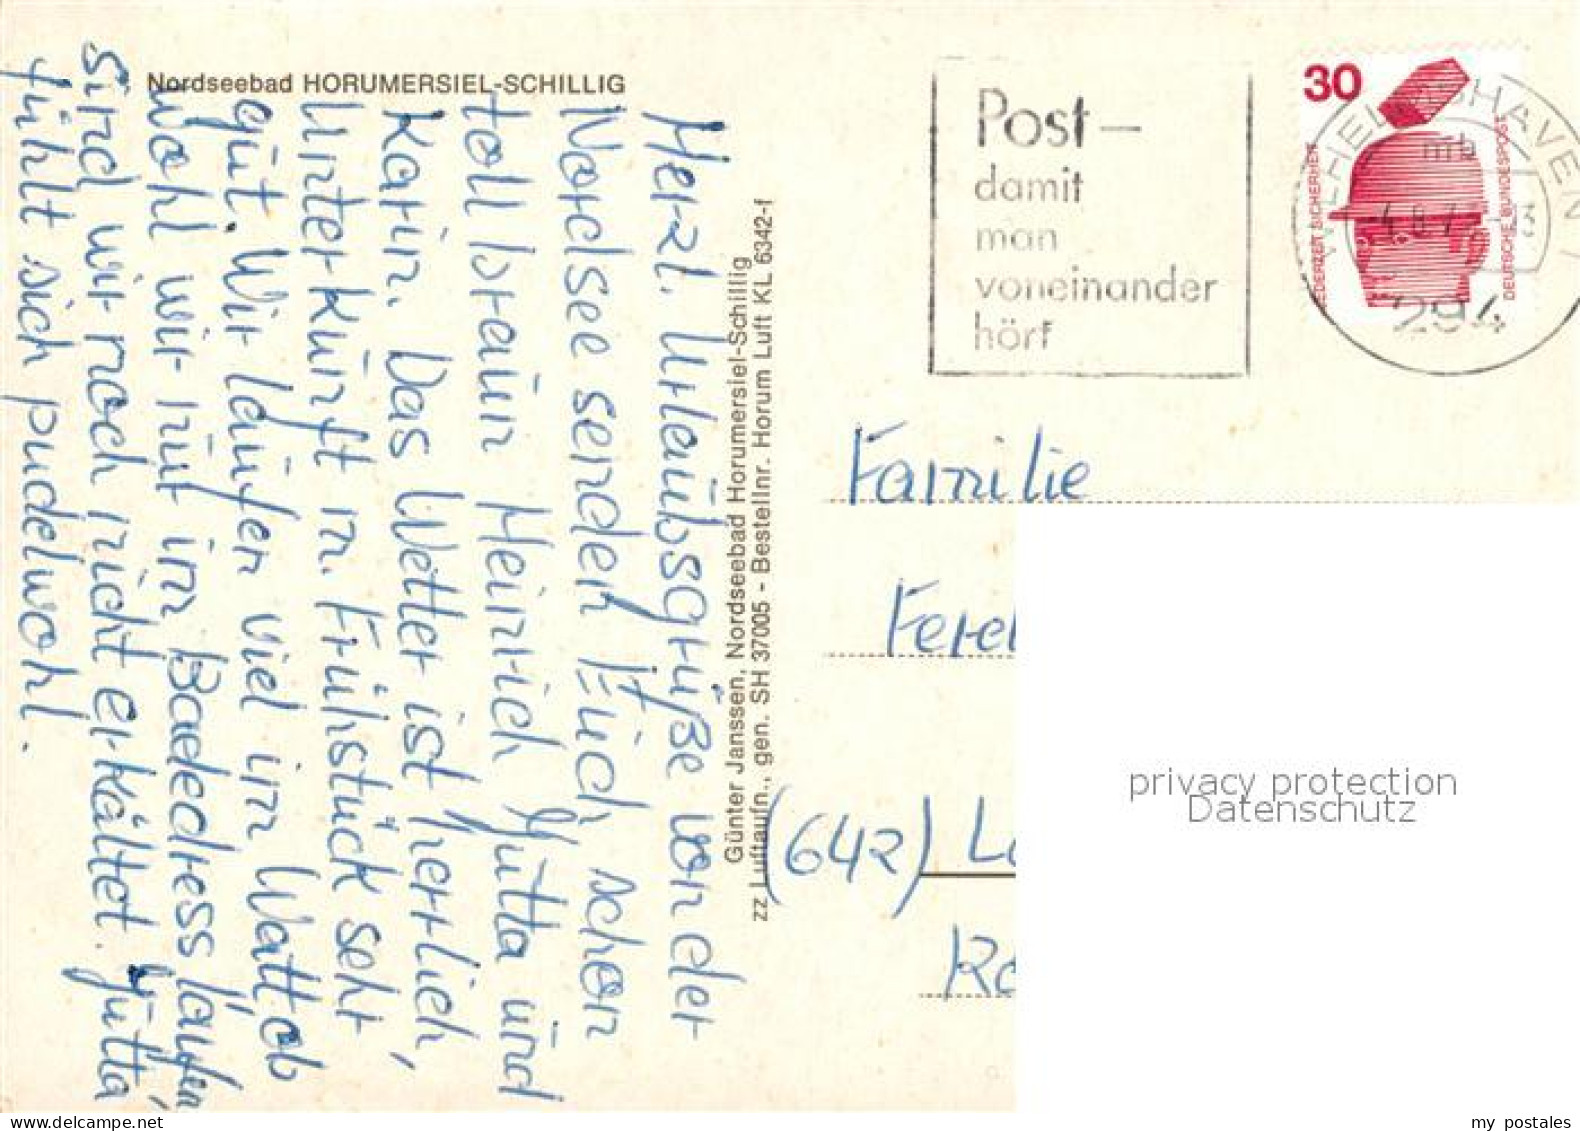 Nordseebad HORUMERSIEL-SCHILLIG
Herzl. Urlaubsgrüße von der
Nordsee senden Euch schon
toll braun Heinrich Jutta und
Karin. Das Wetter ist herrlich,
Unterkunft m. Frühstück sehr
gut. Wir laufen viel im Watt ob
wohl wir nut im Badedress laufen,
sind wir noch nicht erkältet. Jutta
fühlt sich pudelwohl.
Günter Janssen, Nordseebad Horumersiel-Schillig
zz Luftaufn., gen. SH 37005 - Bestellnr. Horum Luft KL 6342-f
Post-
damit
man
voneinander
hört
30
JEDERZEIT SICHERHEIT
DEUTSCHE BUNDESPOST
WILHELMSHAVEN 1
mb
294
Familie
(642)
privacy protection
Datenschutz
my postales